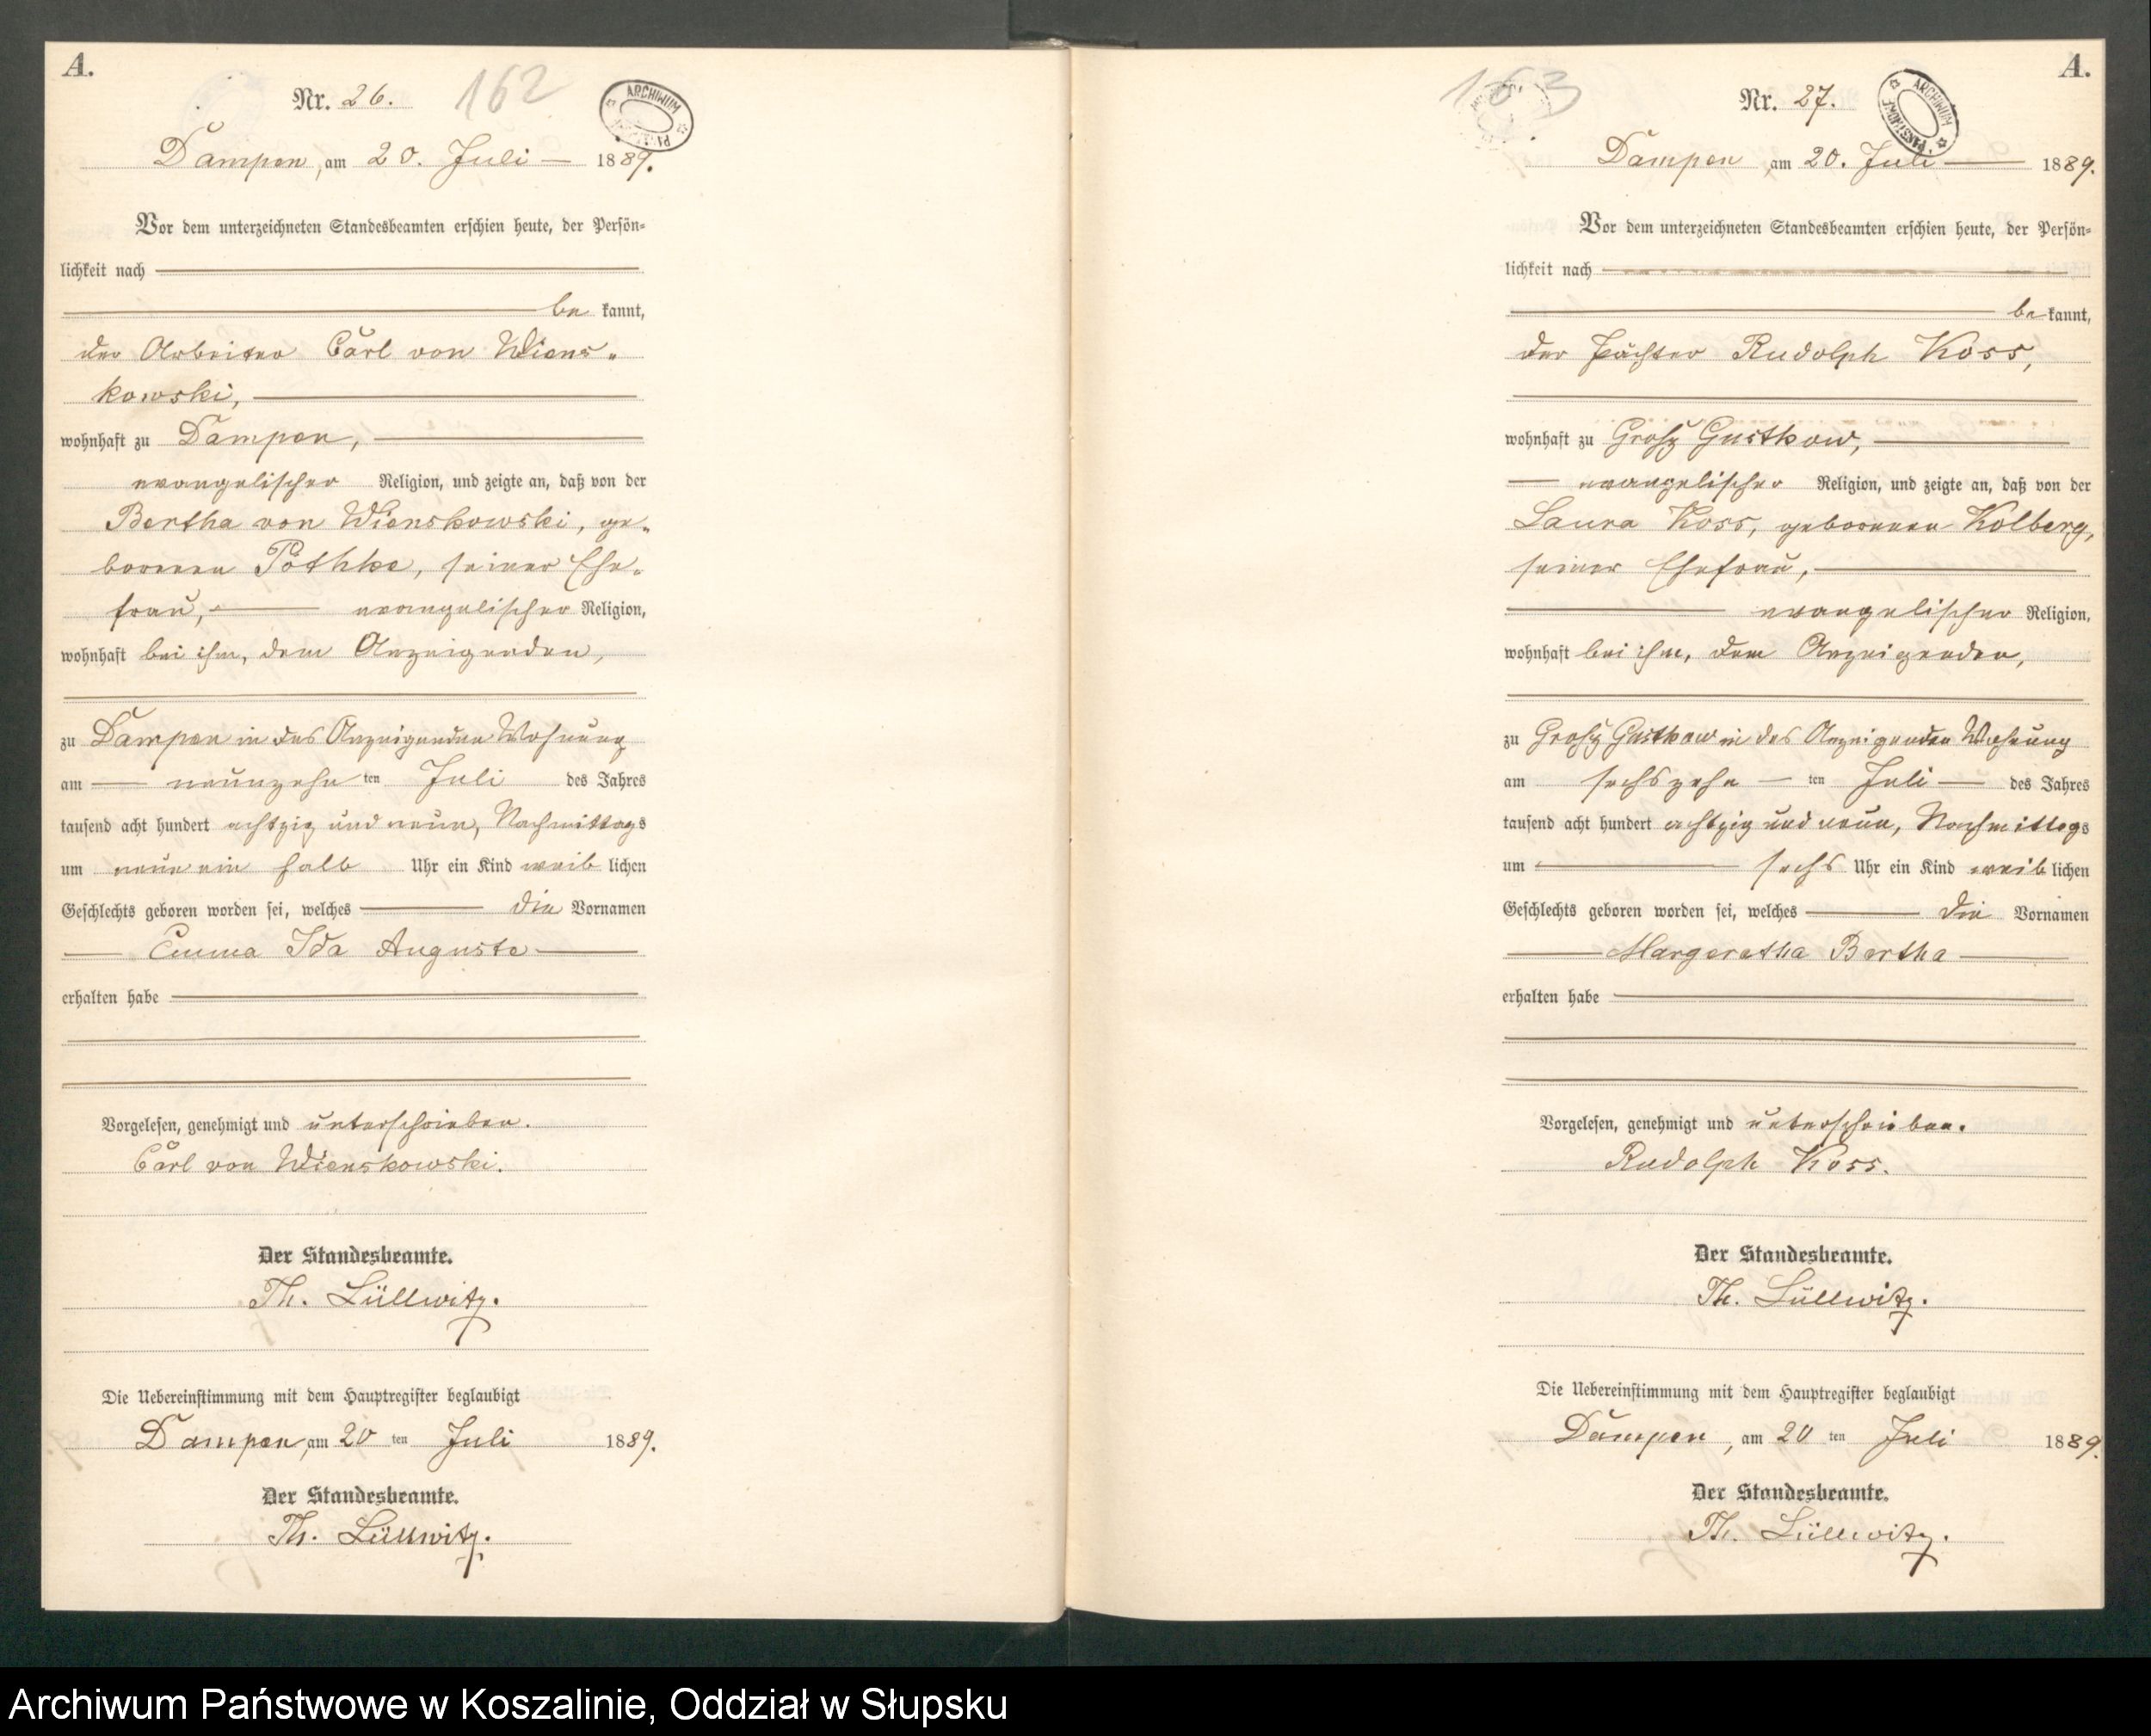 A.
Nr. 26.
162
ARCHIWUM
Dampen, am 20. Juli 1889.
Vor dem unterzeichneten Standesbeamten erschien heute, der Persön=
lichkeit nach
be kannt,
der Arbeiter Carl von Wiens=
kowski,
wohnhaft zu Dampen,
evangelischer Religion, und zeigte an, daß von der
Bertha von Wienskowski, ge=
borenen Pöthke, seiner Ehe=
frau, evangelischer Religion,
wohnhaft bei ihm, dem Anzeigenden,
zu Dampen in des Anzeigenden Wohnung
am neunzehn ten Juli des Jahres
tausend acht hundert achtzig und neun, Nachmittags
um neun ein halb Uhr ein Kind weib lichen
Geschlechts geboren worden sei, welches die Vornamen
Emma Ida Auguste
erhalten habe
Vorgelesen, genehmigt und unterschrieben.
Carl von Wienskowski.
Der Standesbeamte.
Th. Lüllwitz.
Die Uebereinstimmung mit dem Hauptregister beglaubigt
Dampen, am 20 ten Juli 1889.
Der Standesbeamte.
Th. Lüllwitz.
A.
163
Nr. 27.
ARCHIWUM PAŃSTWOWE
Dampen, am 20. Juli 1889.
Vor dem unterzeichneten Standesbeamten erschien heute, der Persön=
lichkeit nach
be kannt,
der Pächter Rudolph Koss,
wohnhaft zu Grosz Gustkow,
evangelischer Religion, und zeigte an, daß von der
Laura Koss, geborenen Kolberg,
seiner Ehefrau,
evangelischer Religion,
wohnhaft bei ihm, dem Anzeigenden,
zu Grosz Gustkow in des Anzeigenden Wohnung
am sechszehn ten Juli des Jahres
tausend acht hundert achtzig und neun, Nachmittags
um sechs Uhr ein Kind weib lichen
Geschlechts geboren worden sei, welches die Vornamen
Margeretha Bertha
erhalten habe
Vorgelesen, genehmigt und unterschrieben.
Rudolph Koss.
Der Standesbeamte.
Th. Lüllwitz.
Die Uebereinstimmung mit dem Hauptregister beglaubigt
Dampen, am 20 ten Juli 1889.
Der Standesbeamte.
Th. Lüllwitz.
Archiwum Państwowe w Koszalinie, Oddział w Słupsku